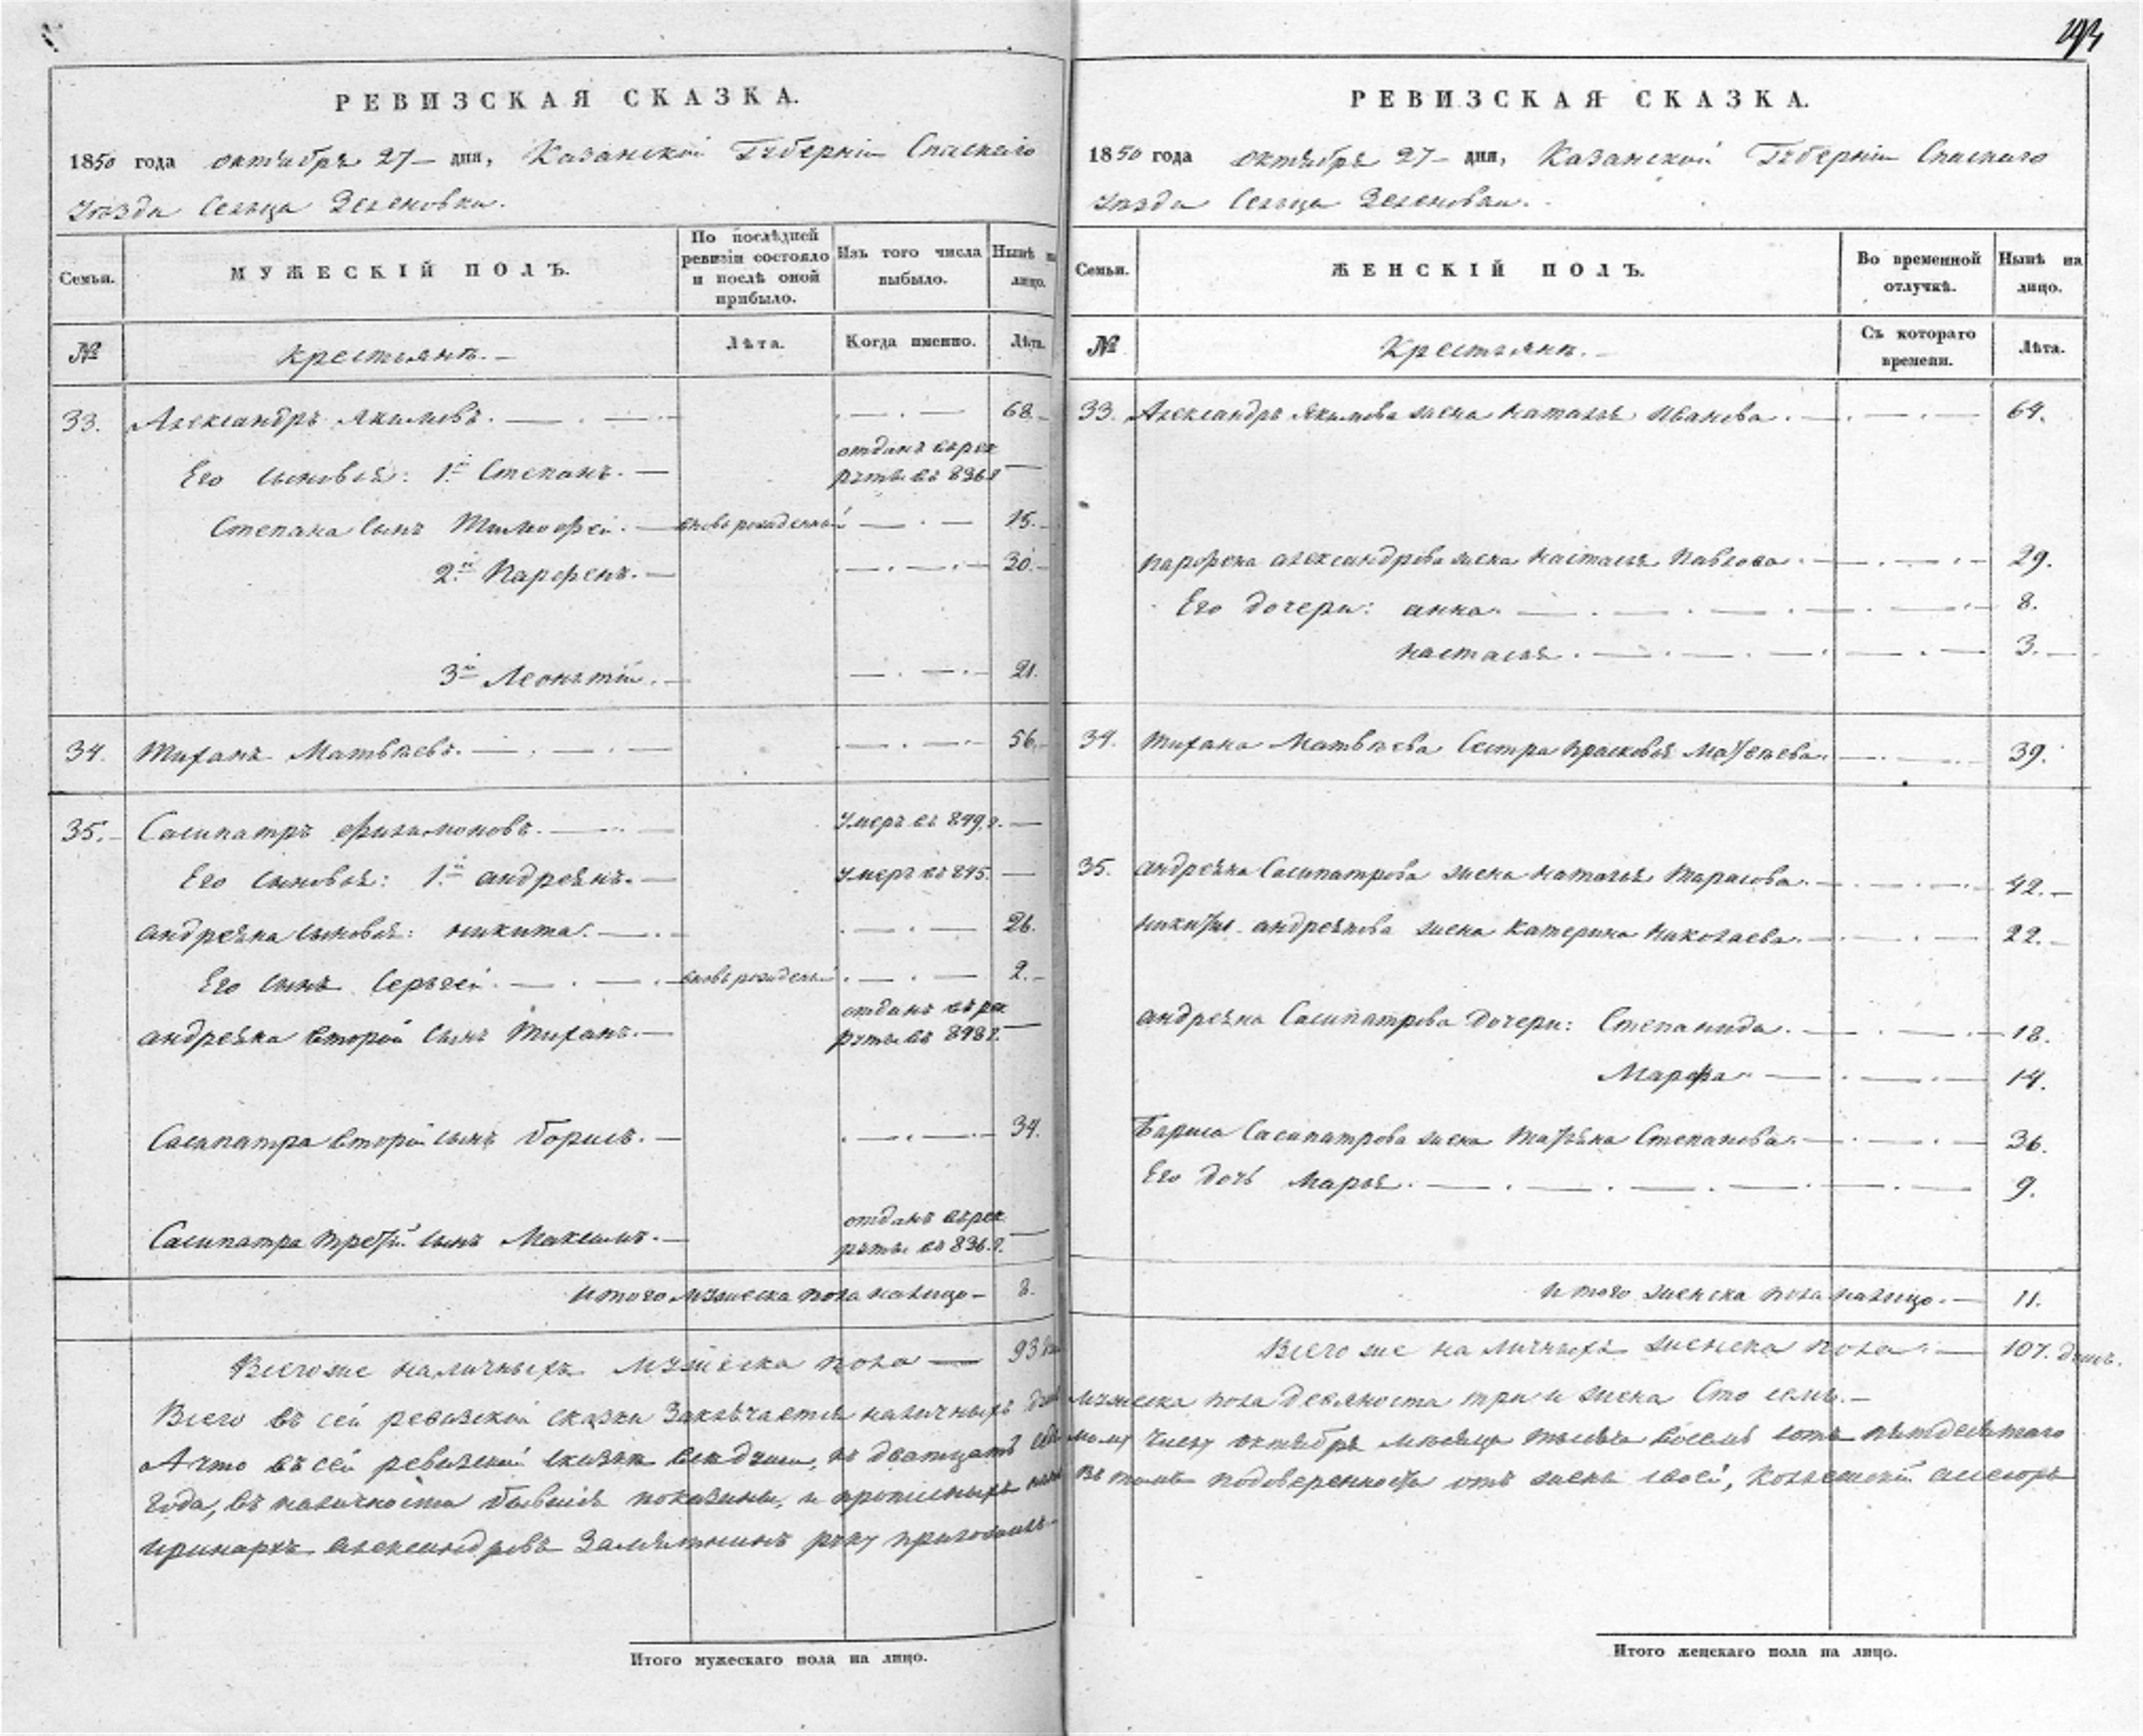 РЕВИЗСКАЯ СКАЗКА.
1850 года октября 27 – дня, Казанской Губернiи Спаскаго
уѣзда Сельца Зеленовки.
Семьи.
МУЖЕСКIЙ ПОЛЪ.
По послѣдней ревизiи состояло и послѣ оной прибыло.
Изъ того числа выбыло.
Нынѣ на лицо.
№
Крестьянѣ. –
Лѣта.
Когда именно.
Лѣта.
33. Александръ Якимовъ. — . — . — . — 68.
отданъ въ рек
Его сыновья: 1й Степанъ. — руты въ 836 г —
Степана сынъ Тимофей. — вновь рожденный — . — 15.
2й Парфенъ. — . — . — 30.
3й Леонътiй. — . — . — 21.
34. Тиханъ Матвѣевъ. — . — . — 56.
35. Сасипатръ Филимоновъ. — умеръ въ 849, г. —
Его сыновья: 1й андреянъ. — умеръ въ 845. —
андреяна сыновья: никита. — . — . — 26.
Его сынъ Серьгей. — . — вновь рожденый . — . — 2.
отданъ въ рек
андреяна второй сынъ Тиханъ. — руты въ 848 г. —
Сасипатра второй сынъ борисъ. — . — . — 34.
отданъ въ рек
Сасипатра третiй сынъ Максимъ. — руты въ 836. г. —
итого мужеска пола налицо – 8.
Всего же наличныхъ мужеска пола — 93
Всего въ сей ревизской сказки Заключается наличныхъ душ
А что въ сей ревизской сказкѣ вси души, къ двадцать седь
года, въ наличности бывшiя показаны, и прописныхъ
иринархъ александровъ Замятнинъ руку приложилъ
Итого мужескаго пола на лицо.
РЕВИЗСКАЯ СКАЗКА.
1850 года октября 27 – дня, Казанской Губернiи Спаскаго
уѣзда Сельца Зеленовки.
Семьи.
ЖЕНСКIЙ ПОЛЪ.
Во временной отлучкѣ.
Нынѣ на лицо.
№
Крестьянѣ. –
Съ котораго времени.
Лѣта.
33. Александръ Якимова жена наталья иванова. — . — . — 64.
парфена александрова жена настасья Павлова. — . — 29.
Его дочери: анна. — . — . — 8.
настасья. — . — . — 3.
34. Тихана Матвѣева Сестра прасковья Матвѣева. — . — 39.
35. андреяна Сасипатрова жена наталья Тарасова. — . — 42.
никиты андреянова жена Катерина николаева. — . — 22.
андреяна Сасипатрова дочери: Степанида. — . — 18.
Марфа. — . — 14.
Бариса Сасипатрова жена Татьяна Степанова. — . — 36.
Его дочь марья. — . — . — 9.
итого женска пола налицо. — 11.
Всего же наличныхъ женска пола. — 107. душъ.
мужеска пола девяноста три и женска Сто семь. –
мому числу октября мѣсяца тысяча восемь сотъ пятдесятаго
въ томъ подоверенности отъ жены своей, Колежской асесоръ
Итого женскаго пола на лицо.